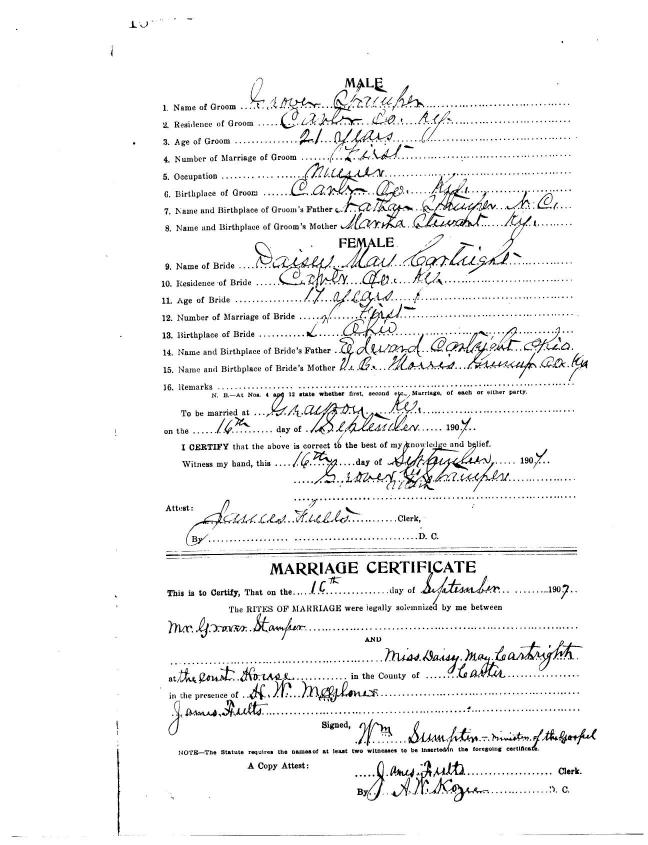 MALE
1. Name of Groom Grover Stamper
2. Residence of Groom Carter Co. Ky.
3. Age of Groom 21 years
4. Number of Marriage of Groom First
5. Occupation
6. Birthplace of Groom Carter Co. Ky.
7. Name and Birthplace of Groom's Father Nathan Stamper N. C.
8. Name and Birthplace of Groom's Mother Martha Stewart Ky.
FEMALE
9. Name of Bride Daisey May Cartright
10. Residence of Bride Carter Co. Ky
11. Age of Bride 17 years
12. Number of Marriage of Bride First
13. Birthplace of Bride Ohio
14. Name and Birthplace of Bride's Father Edward Cartright Ohio
15. Name and Birthplace of Bride's Mother Morris Greenup Co. Ky
16. Remarks
N. B.—At Nos. 4 and 12 state whether first, second etc., Marriage, of each or either party.
To be married at Grayson, Ky.
on the 16th day of September 1907.
I CERTIFY that the above is correct to the best of my knowledge and belief.
Witness my hand, this 16th day of September, 1907.
Grover Stamper
Attest:
James Fults Clerk,
By D. C.
MARRIAGE CERTIFICATE
This is to Certify, That on the 16th day of September 1907.
The RITES OF MARRIAGE were legally solemnized by me between
Mr Grover Stamper
AND
Miss Daisy May Cartright
at the Court House in the County of Carter
in the presence of H. W. McGlone
James Fults
Signed, Wm Sumpter - Minister of the Gospel
NOTE—The Statute requires the names of at least two witnesses to be inserted in the foregoing certificate.
A Copy Attest:
James Fults Clerk.
By J. A. W. D. C.